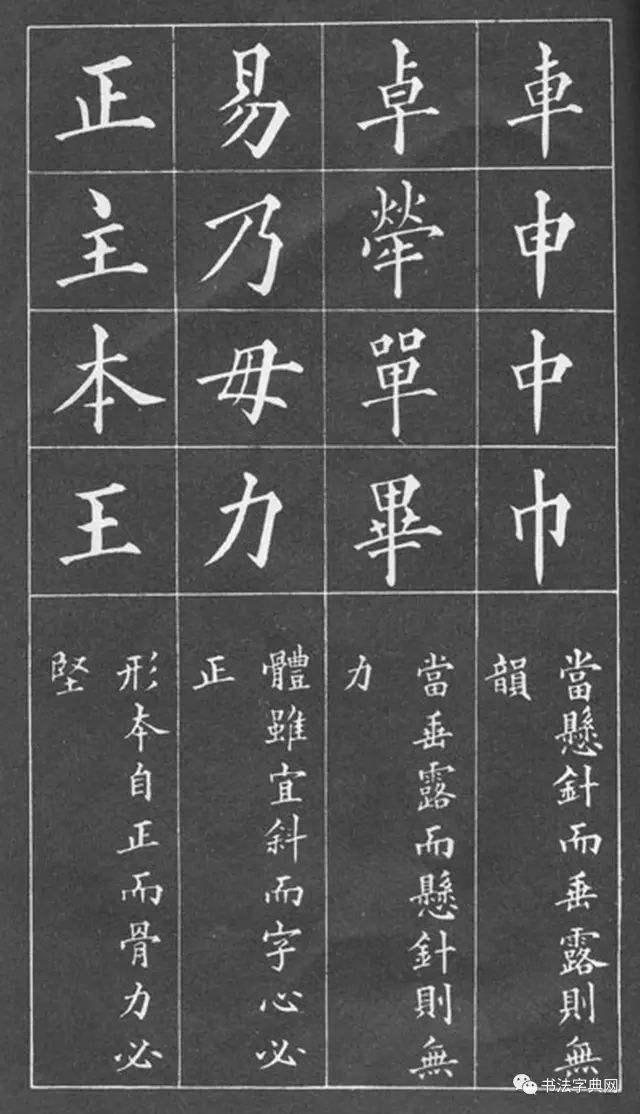 車申中巾
當懸針而垂露則無
韻
卓犖單畢
當垂露而懸針則無
力
易乃毋力
體雖宜斜而字心必
正
正主本王
形本自正而骨力必
堅
书法字典网